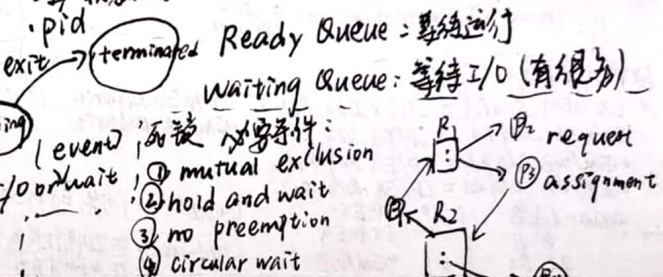 .pid
exit
terminated
Ready Queue：等待运行
Waiting Queue：等待I/O（有很多）
event
死锁 必要条件：
/O or wait
① mutual exclusion
② hold and wait
③ no preemption
④ circular wait
R
P2
request
P3
assignment
P1
R2